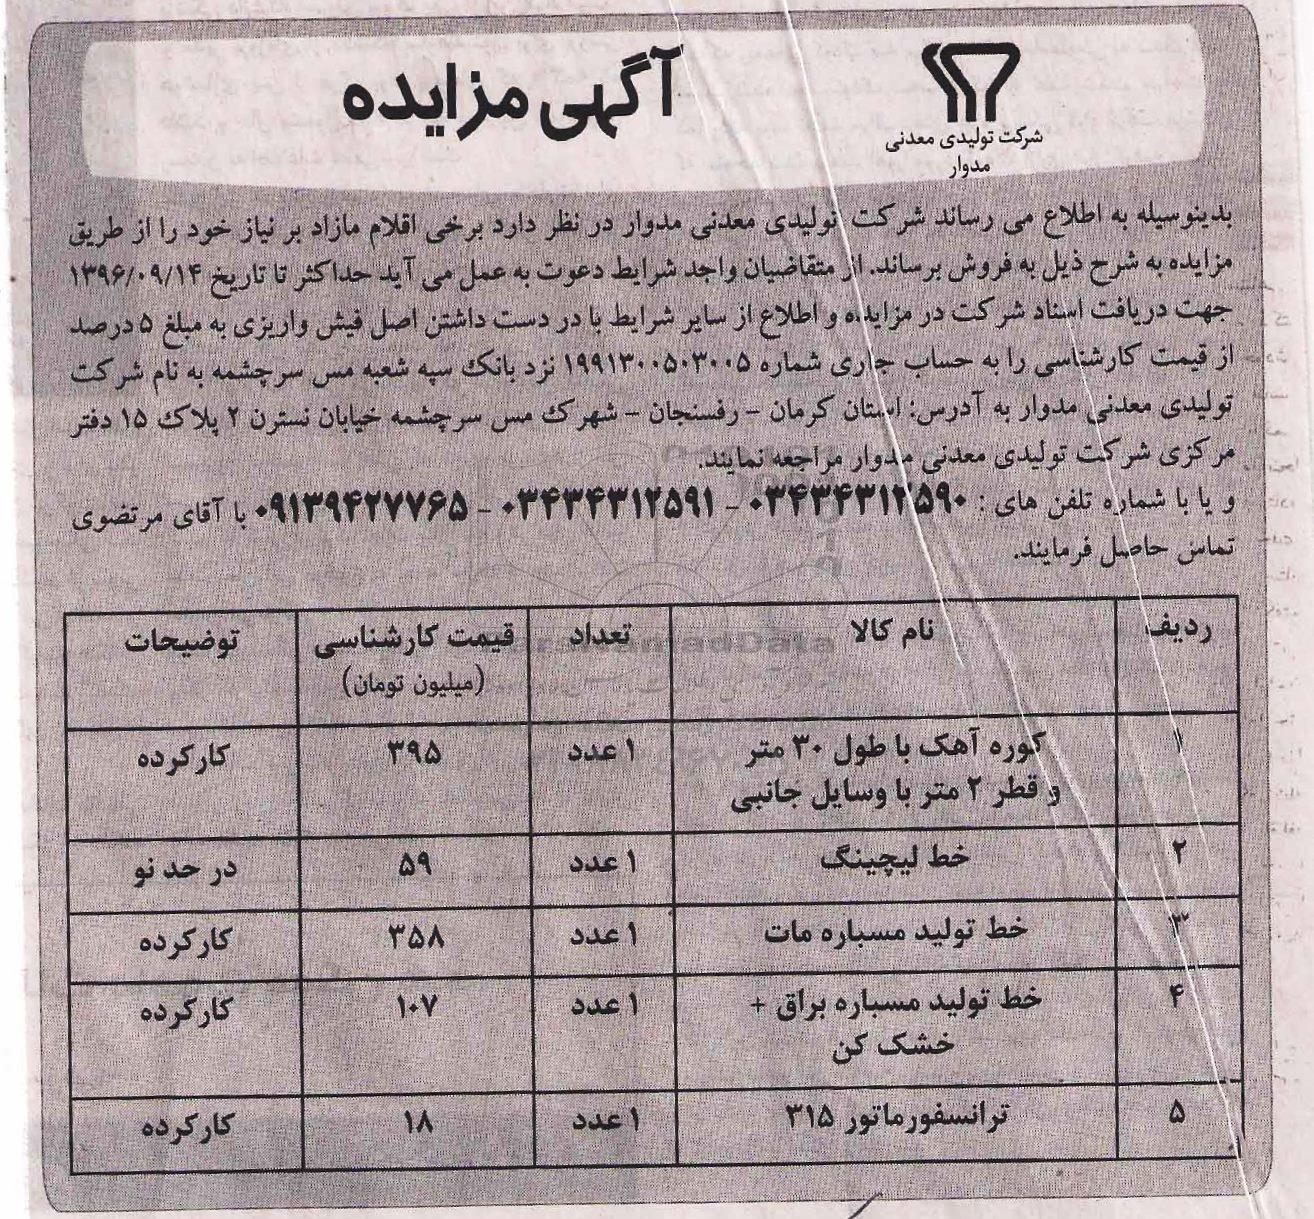 شرکت تولیدی معدنی
مدوار
آگهی مزایده
بدینوسیله به اطلاع می رساند شرکت تولیدی معدنی مدوار در نظر دارد برخی اقلام مازاد بر نیاز خود را از طریق
مزایده به شرح ذیل به فروش برساند. از متقاضیان واجد شرایط دعوت به عمل می آید حداکثر تا تاریخ ۱۳۹۶/۰۹/۱۴
جهت دریافت اسناد شرکت در مزایده و اطلاع از سایر شرایط با در دست داشتن اصل فیش واریزی به مبلغ ۵ درصد
از قیمت کارشناسی را به حساب جاری شماره ۱۹۹۱۳۰۰۵۰۳۰۰۵ نزد بانک سپه شعبه مس سرچشمه به نام شرکت
تولیدی معدنی مدوار به آدرس: استان کرمان - رفسنجان - شهرک مس سرچشمه خیابان نسترن ۲ پلاک ۱۵ دفتر
مرکزی شرکت تولیدی معدنی مدوار مراجعه نمایند.
و یا با شماره تلفن های : ۰۳۴۳۴۳۱۲۵۹۰ - ۰۳۴۳۴۳۱۲۵۹۱ - ۰۹۱۳۹۴۲۷۷۶۵ با آقای مرتضوی
تماس حاصل فرمایند.
ردیف نام کالا تعداد قیمت کارشناسی توضیحات
(میلیون تومان)
۱ کوره آهک با طول ۳۰ متر ۱ عدد ۳۹۵ کارکرده
و قطر ۲ متر با وسایل جانبی
۲ خط لیچینگ ۱ عدد ۵۹ در حد نو
۳ خط تولید مسباره مات ۱ عدد ۳۵۸ کارکرده
۴ خط تولید مسباره براق + ۱ عدد ۱۰۷ کارکرده
خشک کن
۵ ترانسفورماتور ۳۱۵ ۱ عدد ۱۸ کارکرده